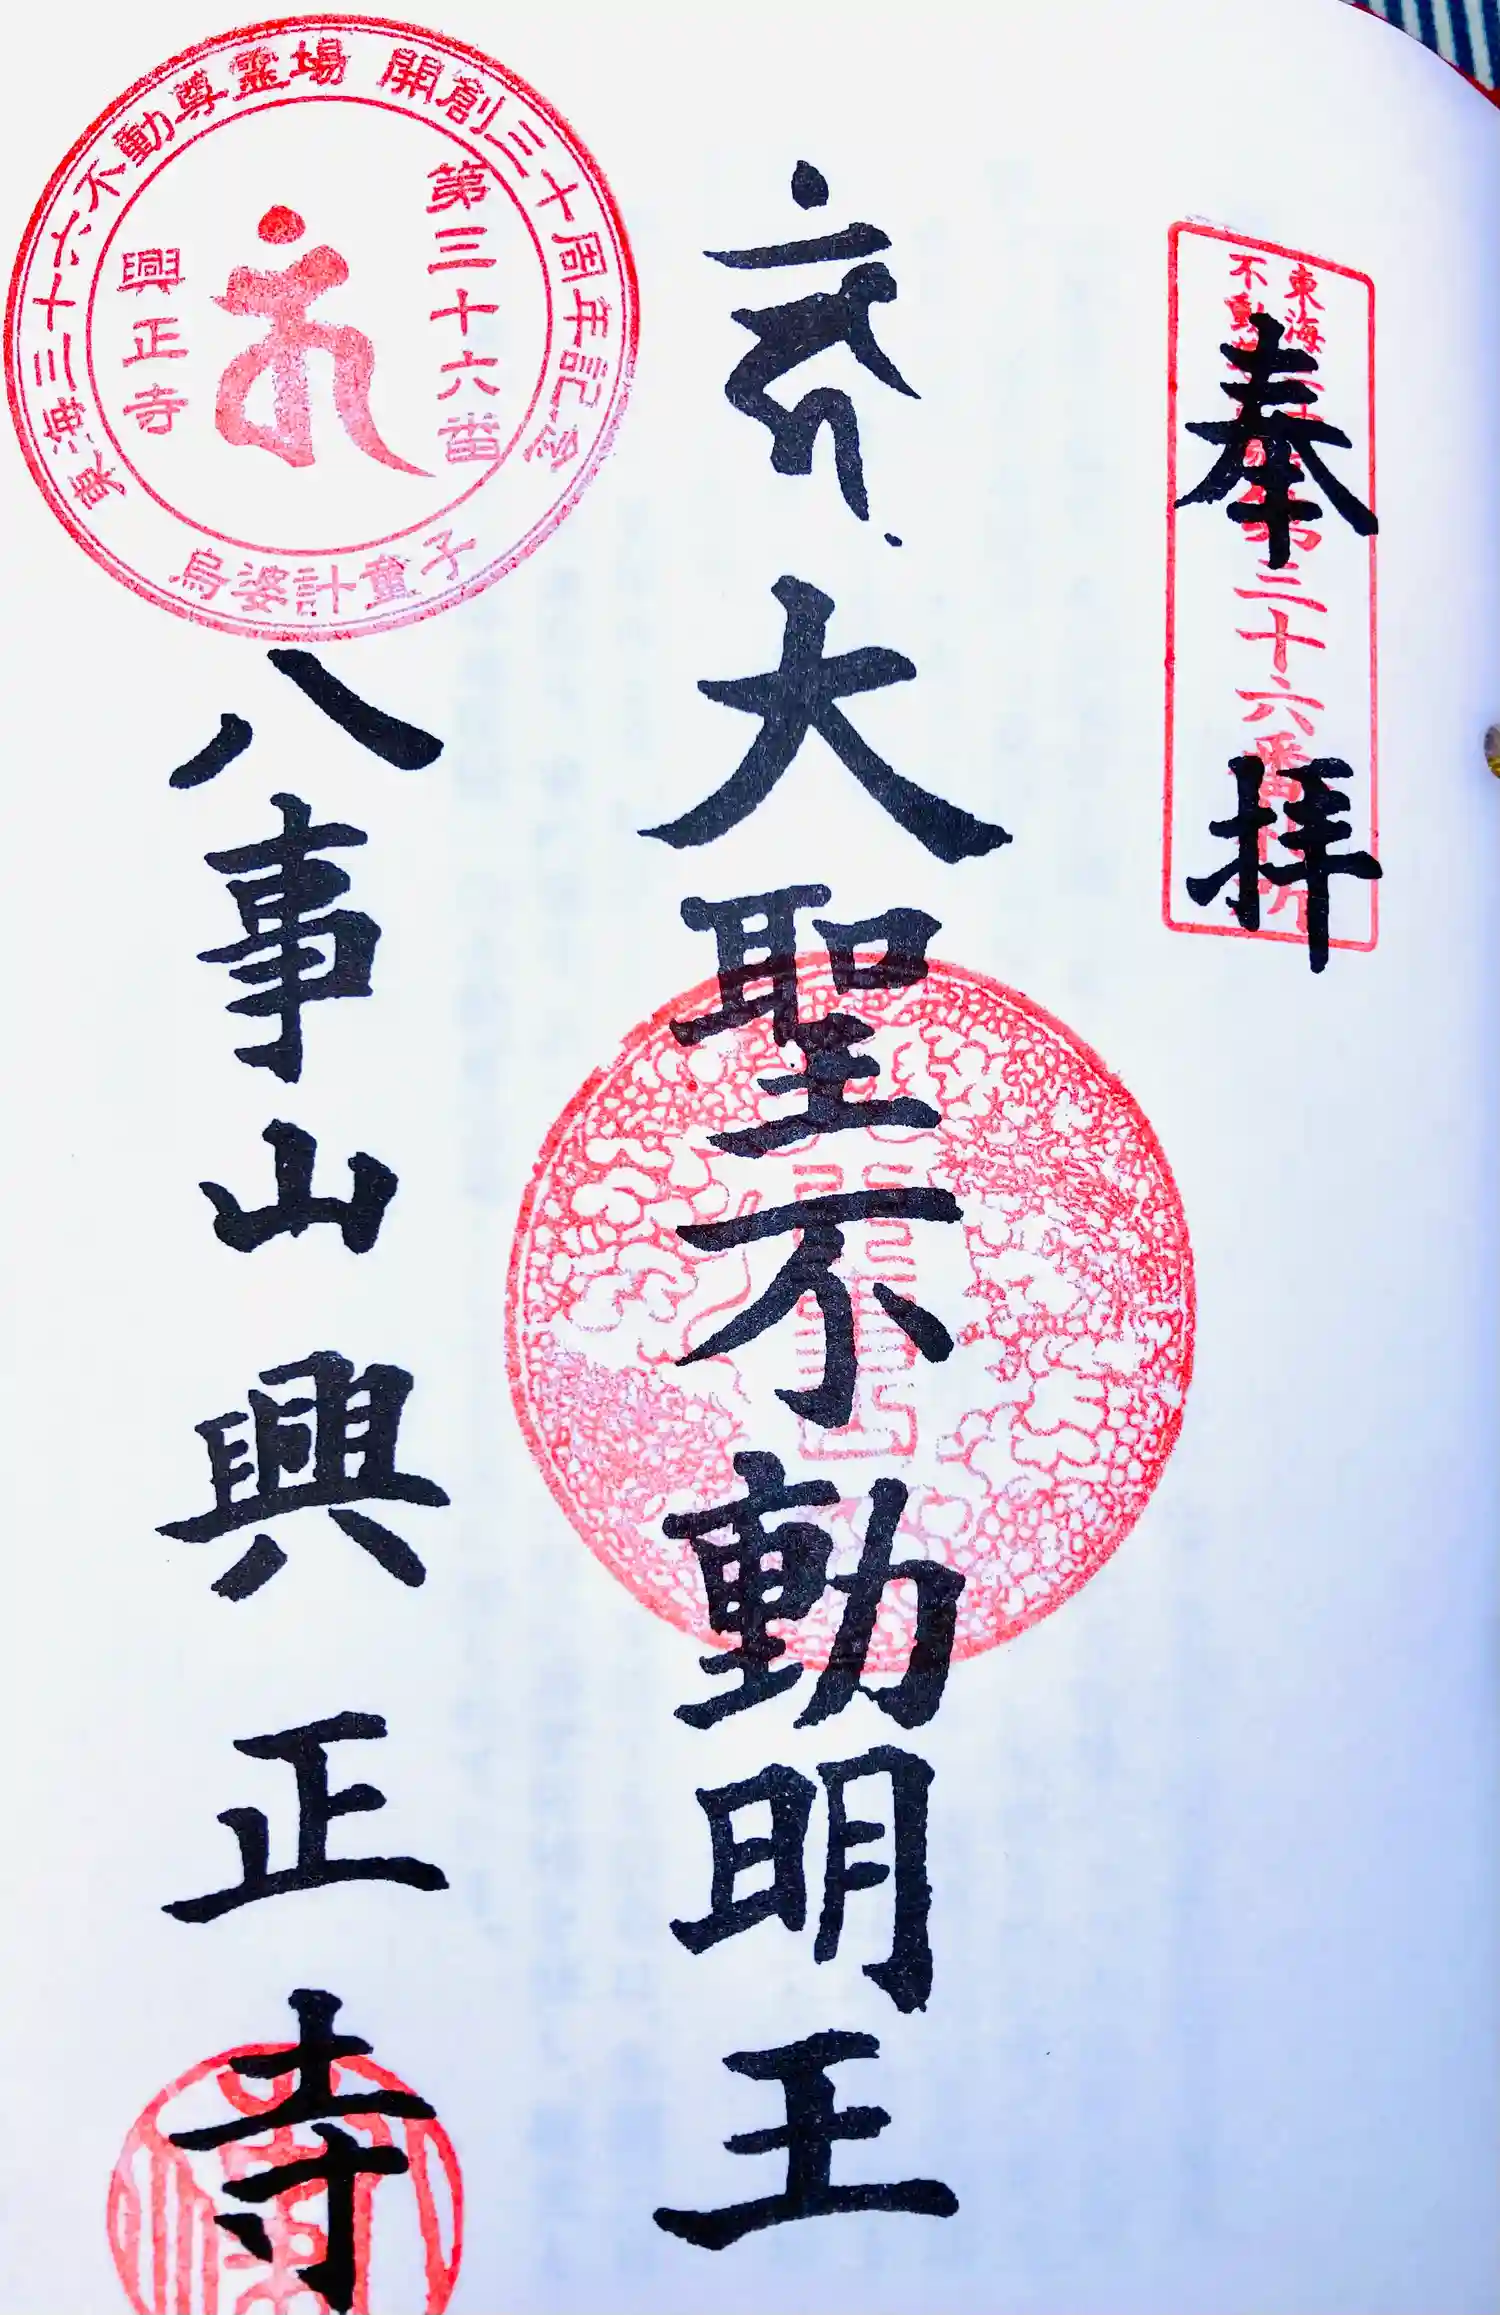 奉拝
東海
不動
第三十六番札所
大聖不動明王
八事山興正寺
東海三十六不動尊霊場 開創三十周年記念
第三十六番
興正寺
烏婆計童子